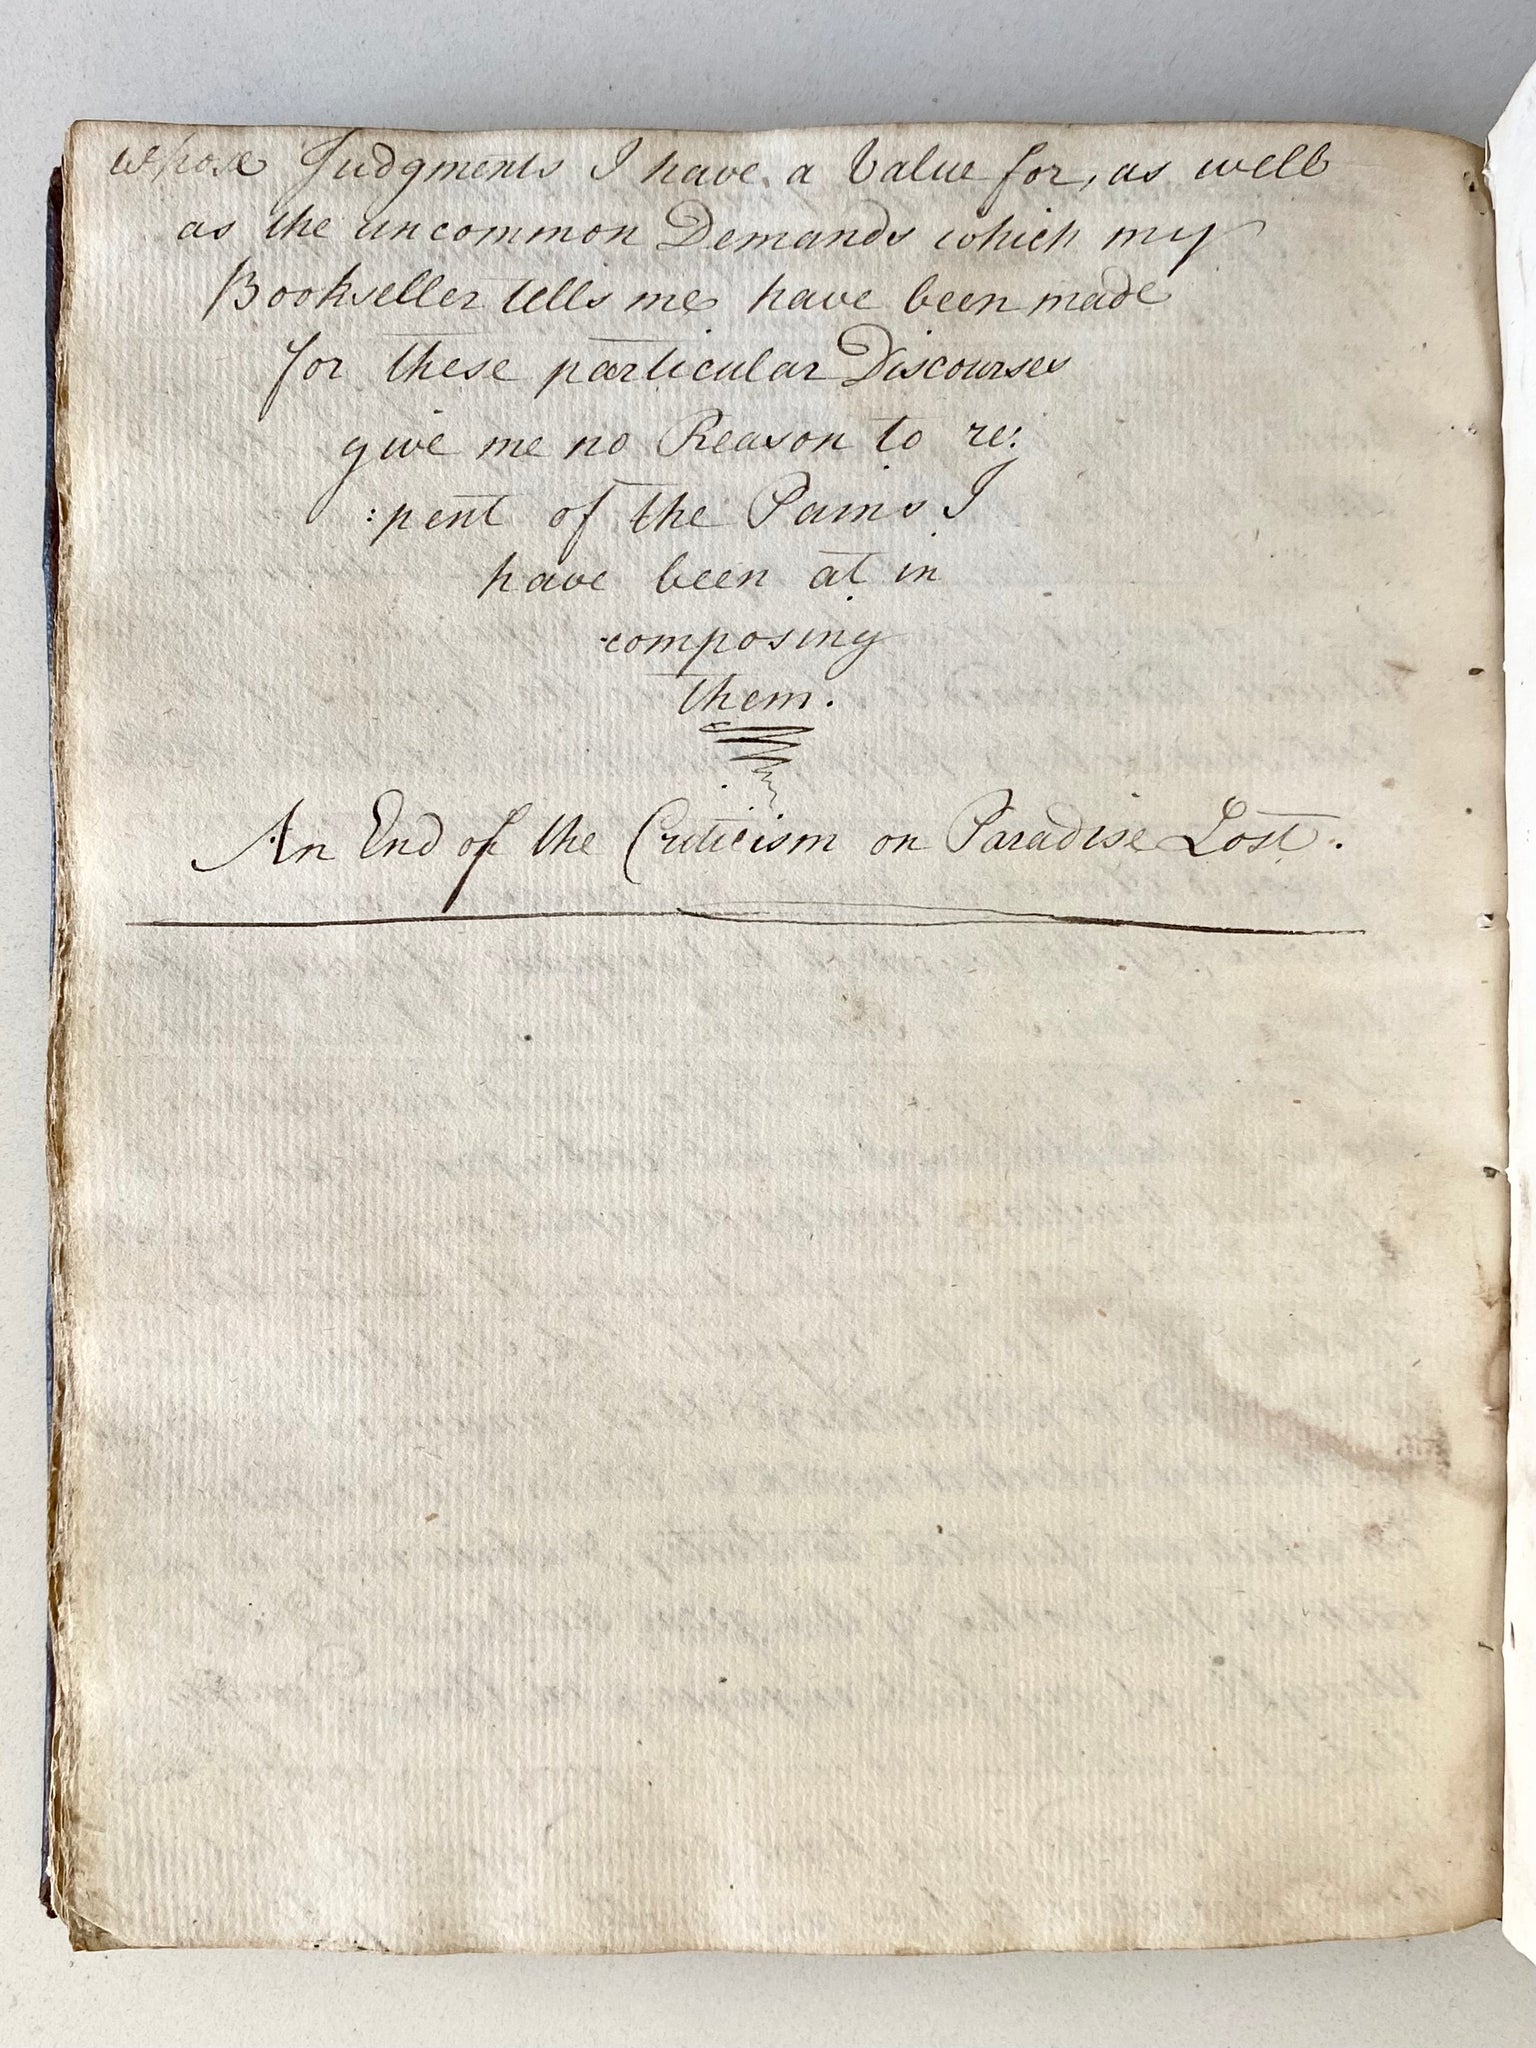 whose Judgments I have a Value for, as well
as the uncommon Demands which my
Bookseller tells me have been made
for these particular Discourses
give me no Reason to re:
:pent of the Pains I
have been at in
composing
them.
An End of the Criticism on Paradise Lost.